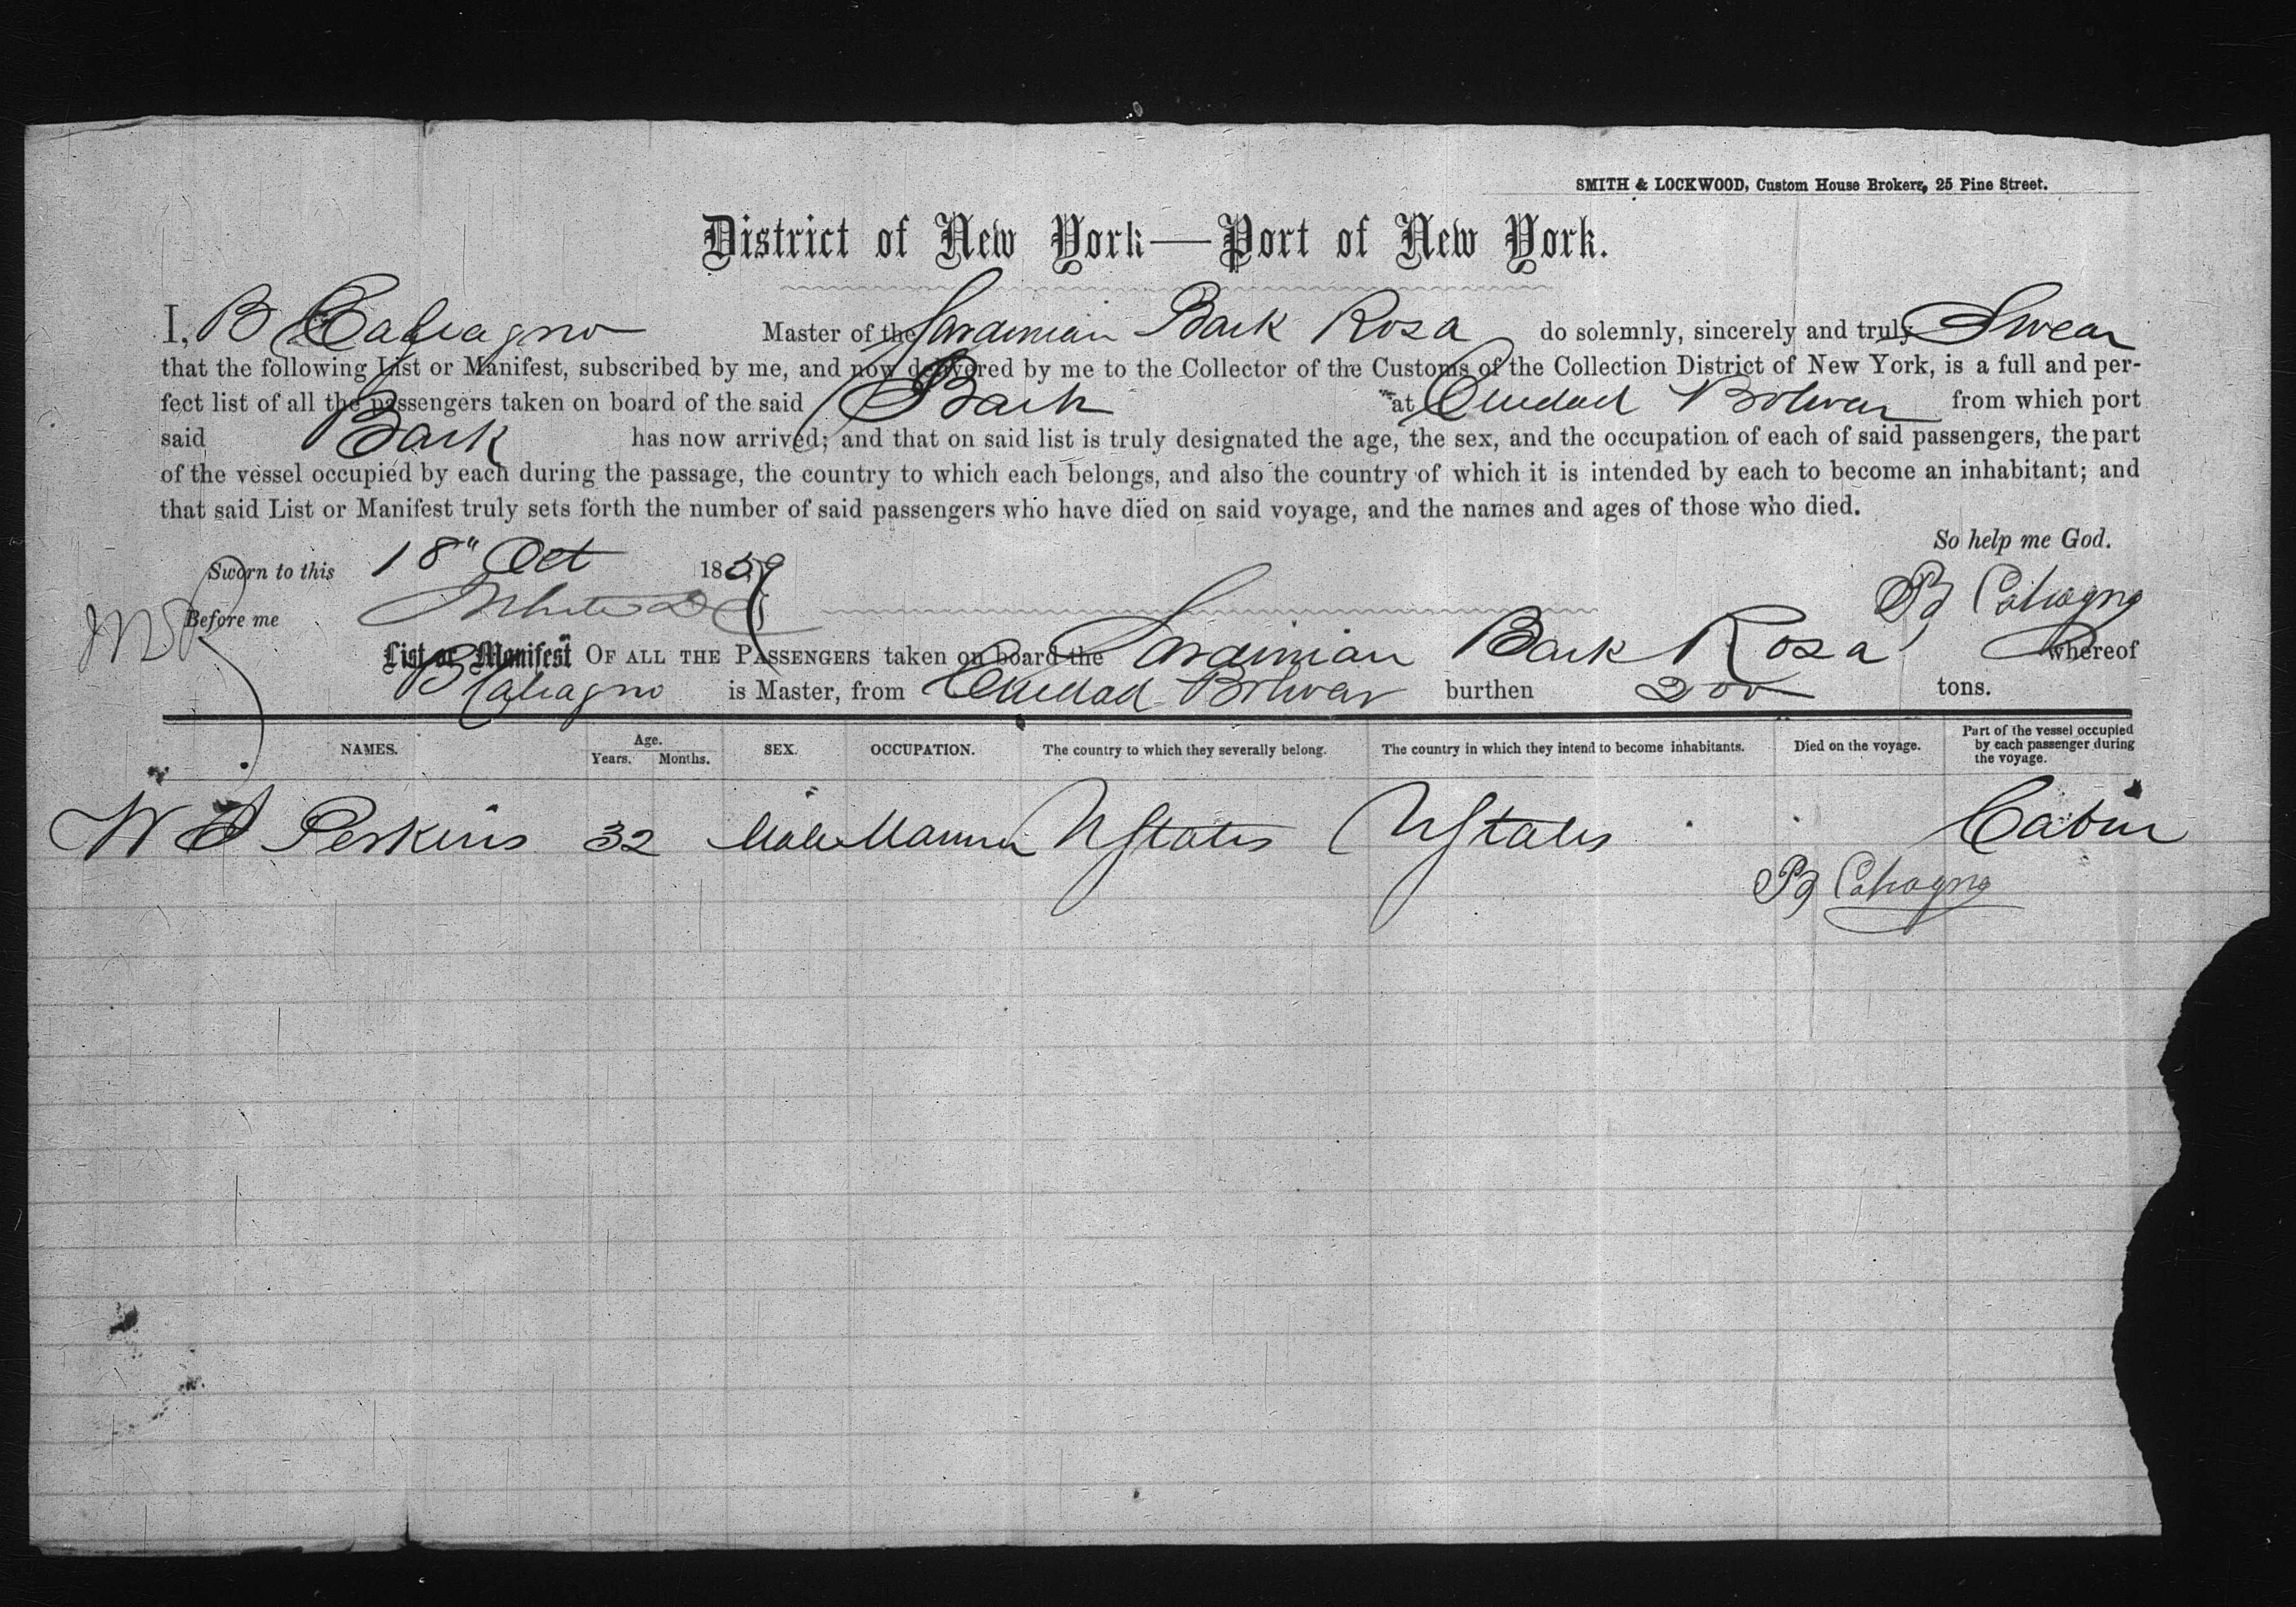 SMITH & LOCKWOOD, Custom House Brokers, 25 Pine Street.
District of New York—Port of New York.
I, B Master of the Sardinian Bark Rosa do solemnly, sincerely and truly Swear
that the following List or Manifest, subscribed by me, and now delivered by me to the Collector of the Customs of the Collection District of New York, is a full and per-
fect list of all the passengers taken on board of the said Bark at Ciudad Bolivar from which port
said Bark has now arrived; and that on said list is truly designated the age, the sex, and the occupation of each of said passengers, the part
of the vessel occupied by each during the passage, the country to which each belongs, and also the country of which it is intended by each to become an inhabitant; and
that said List or Manifest truly sets forth the number of said passengers who have died on said voyage, and the names and ages of those who died.
So help me God.
Sworn to this 18" Oct 1859
Before me
List or Manifest OF ALL THE PASSENGERS taken on board the Sardinian Bark Rosa whereof
B is Master, from Ciudad Bolivar burthen 200 tons.
NAMES. Age. Years. Months. SEX. OCCUPATION. The country to which they severally belong. The country in which they intend to become inhabitants. Died on the voyage. Part of the vessel occupied by each passenger during the voyage.
W Perkins 32 Male Mariner U States U States Cabin